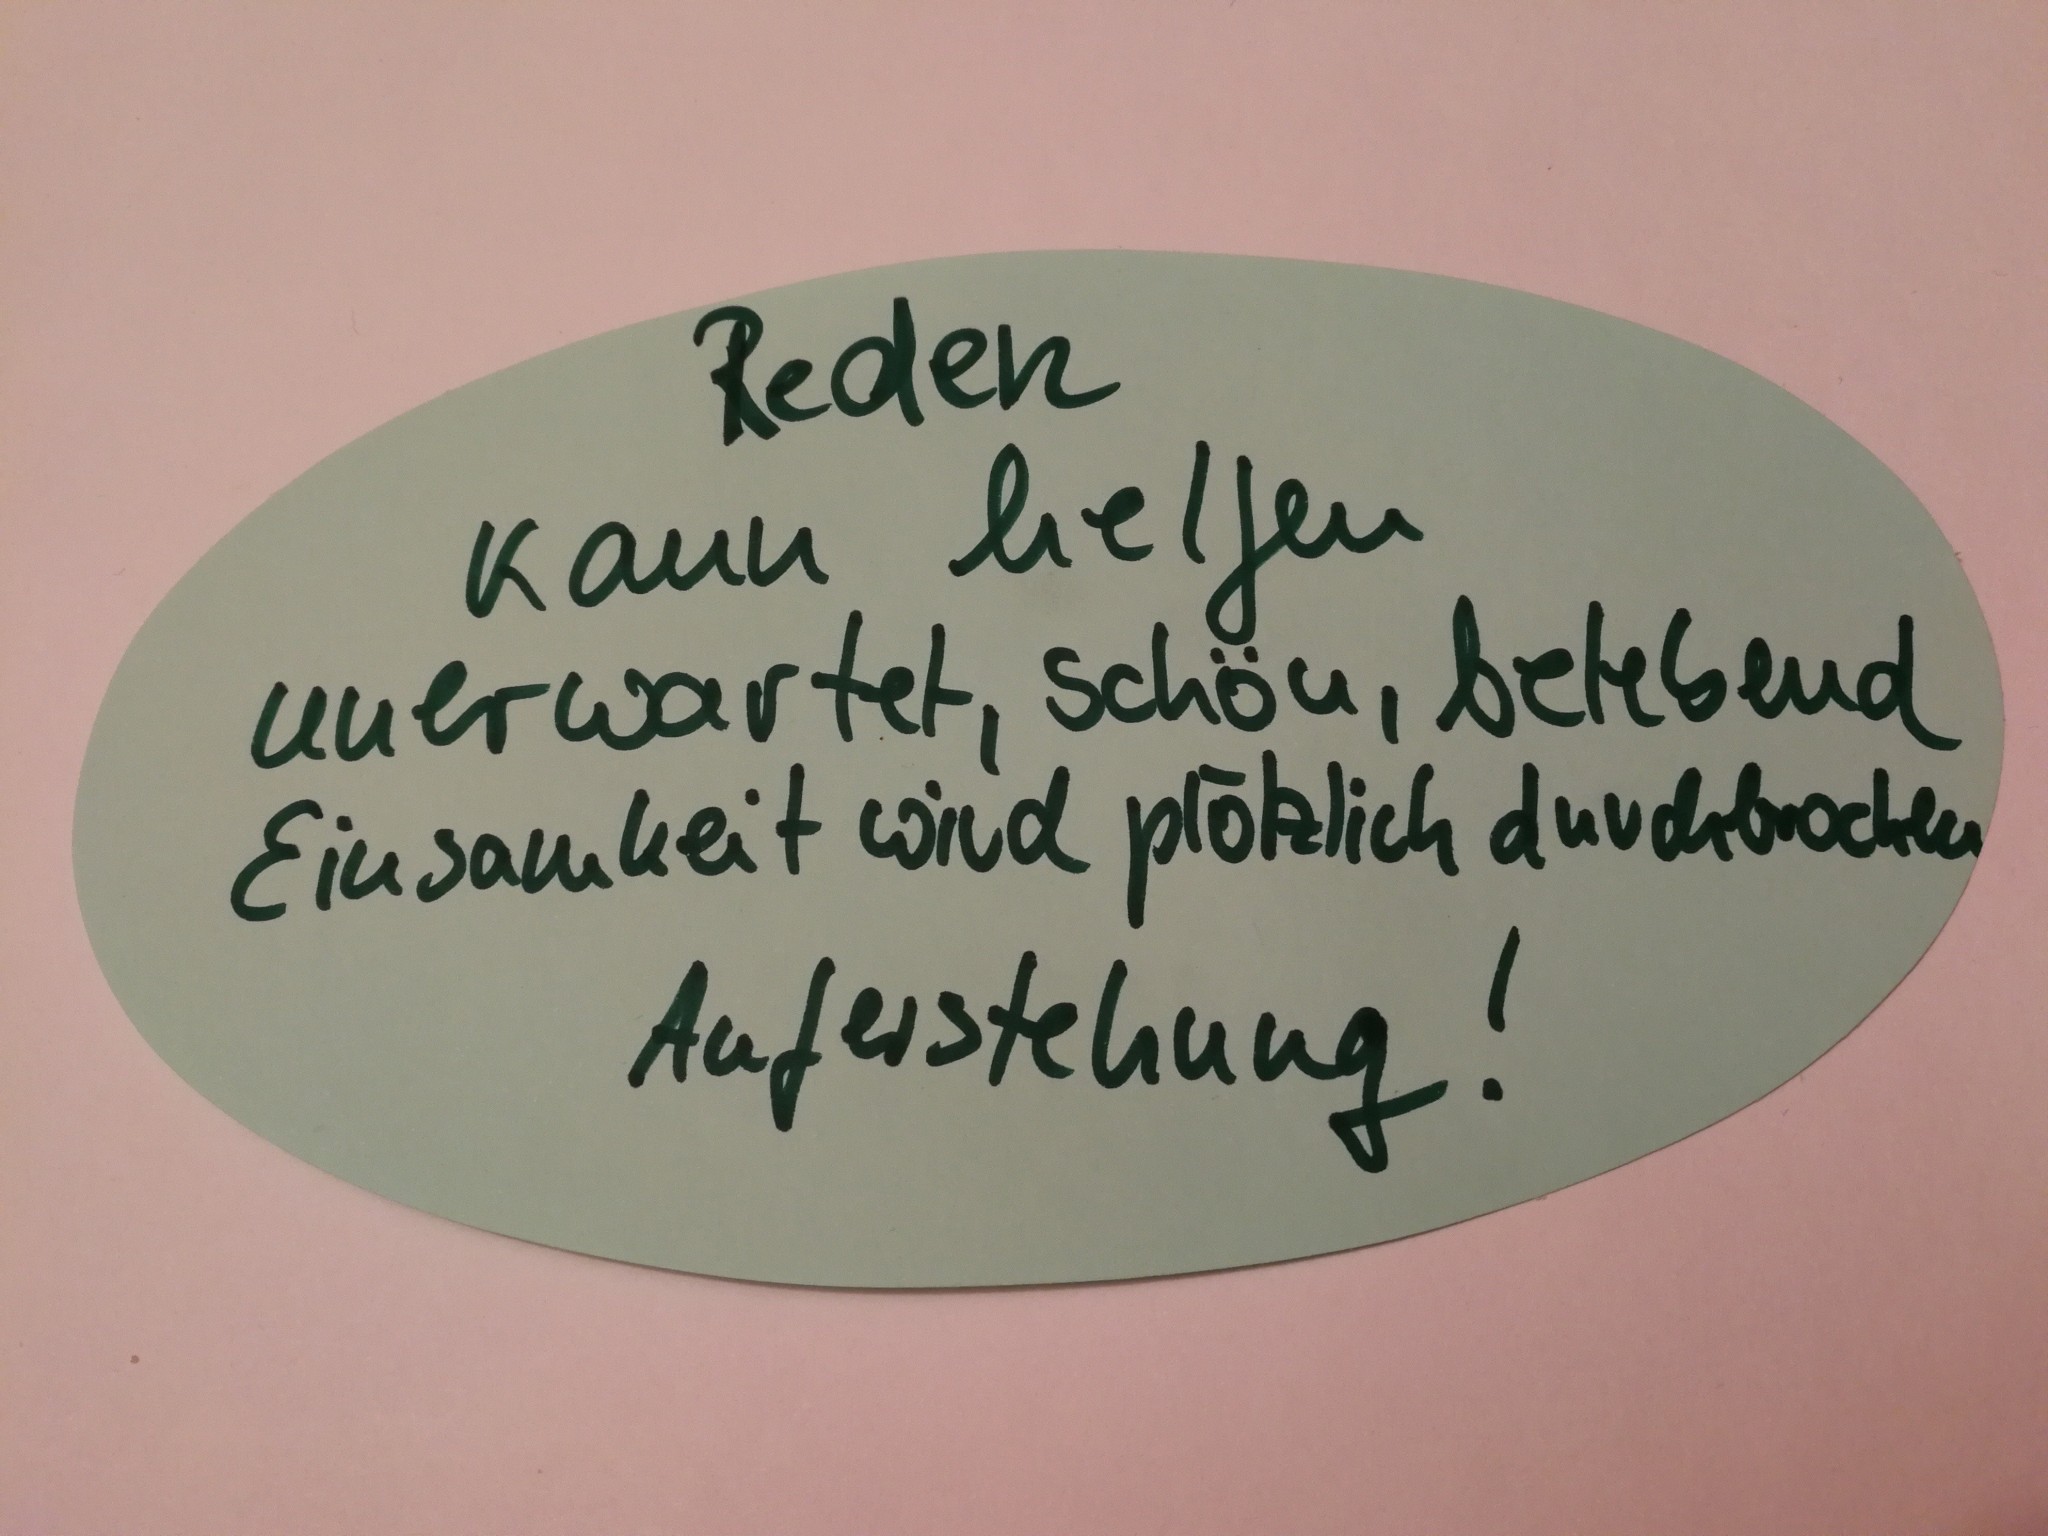 Reden
kann helfen
unerwartet, schön, belebend
Einsamkeit wird plötzlich durchbrochen
Auferstehung!